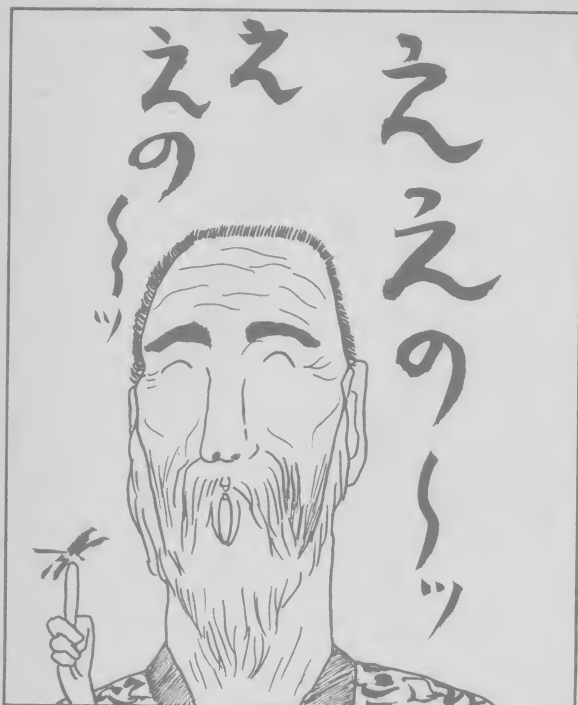 ええの〜ッ
え
えの〜ッ